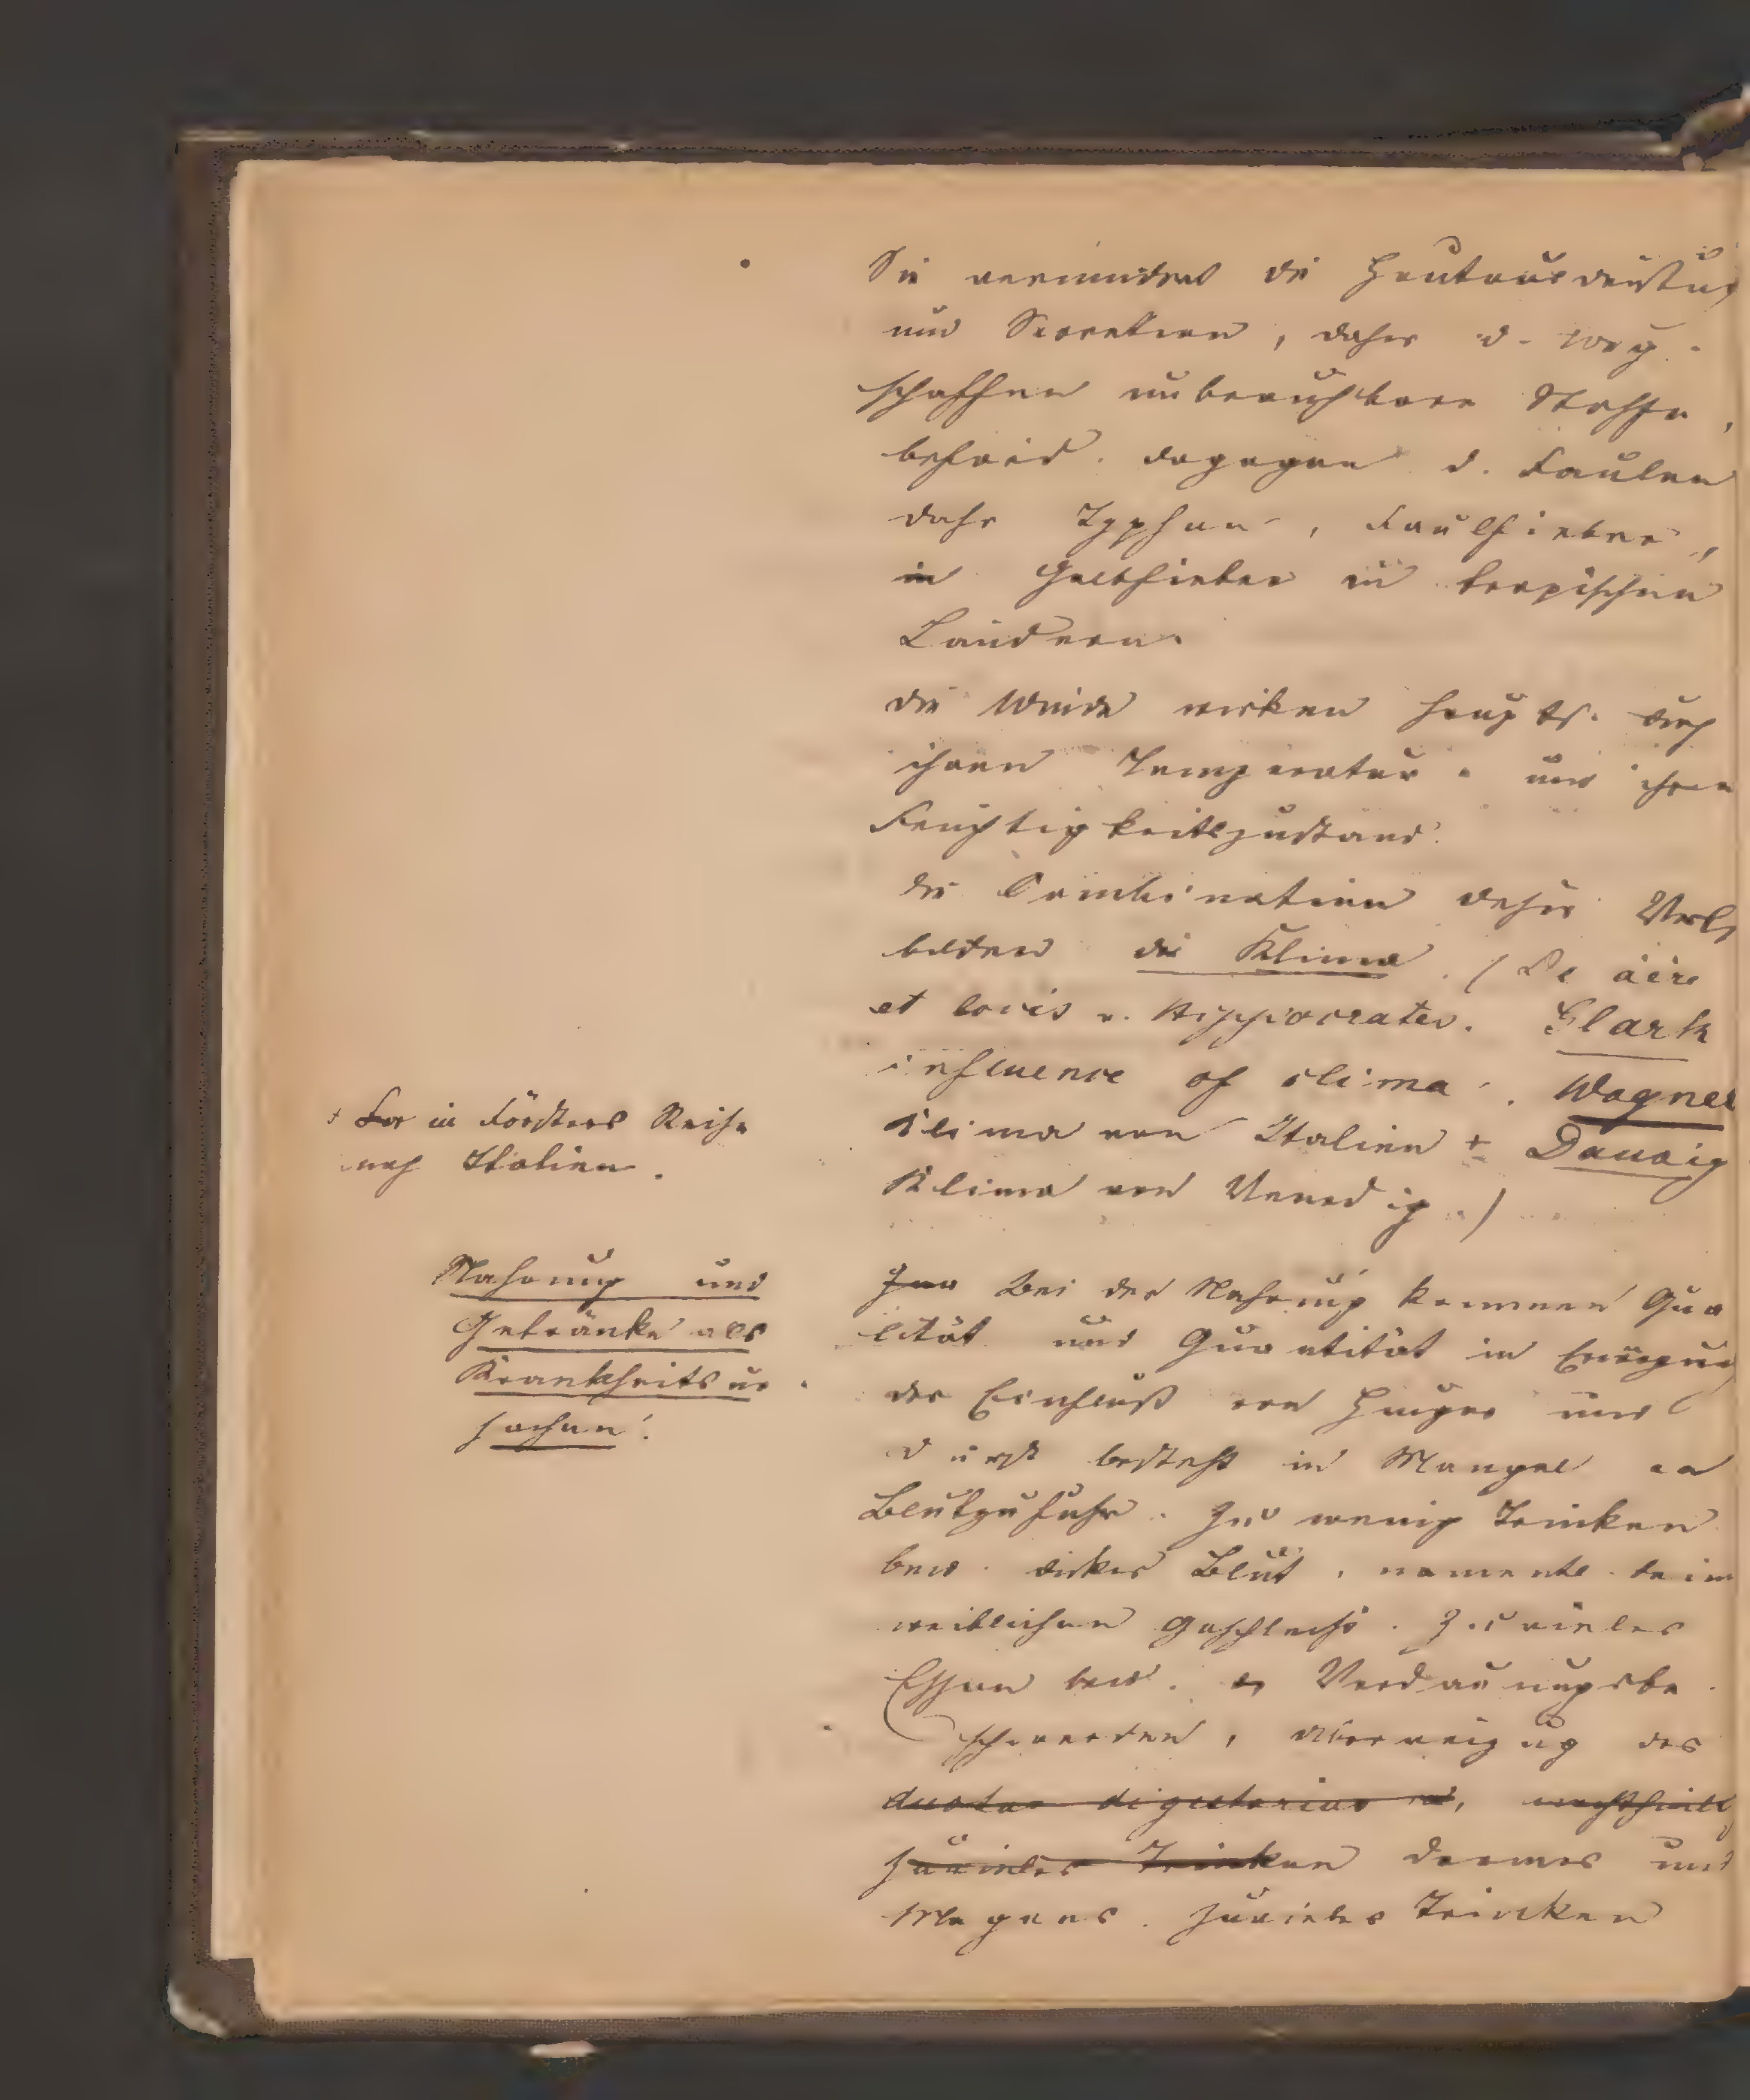 Sie vermindert die Hautausdünstung
und Secretion, daher d. Weg-
schaffen unbrauchbarer Stoffe,
beförd. dagegen d. Faulen
dahr Typhen, Faulfieber,
in Gelbfieber in tropischen
Ländern.
die Winde wirken haupts. durch
ihren Temperatur- und ihren
Feuchtigkeitszustand.
die Combination dieser Verh
bilden die Klima. (De aëre
et locis v. Hippocrates. Clark
influence of clima. Wagner
Clima von Italien + Danzig
Klima von Venedig.)
+ For in Försters Reise
nach Italien.
Nahrung und
Getränke als
Krankheitsur-
sachen.
Zua Bei der Nahrung kommen Qua
lität und Quantität in Erwägung
der Einfluß von Hunger und
Durst besteht in Mangel an
Blutzufuhr. Zu wenig Trinken
bew. dickes Blut, namentl. beim
weiblichen Geschlecht. Zu vieles
Essen bew. Verdauungsbe-
schwerden, des
ductus digestorius
zuvieles Trinken Darmes und
Magens. Zuvieles Trinken